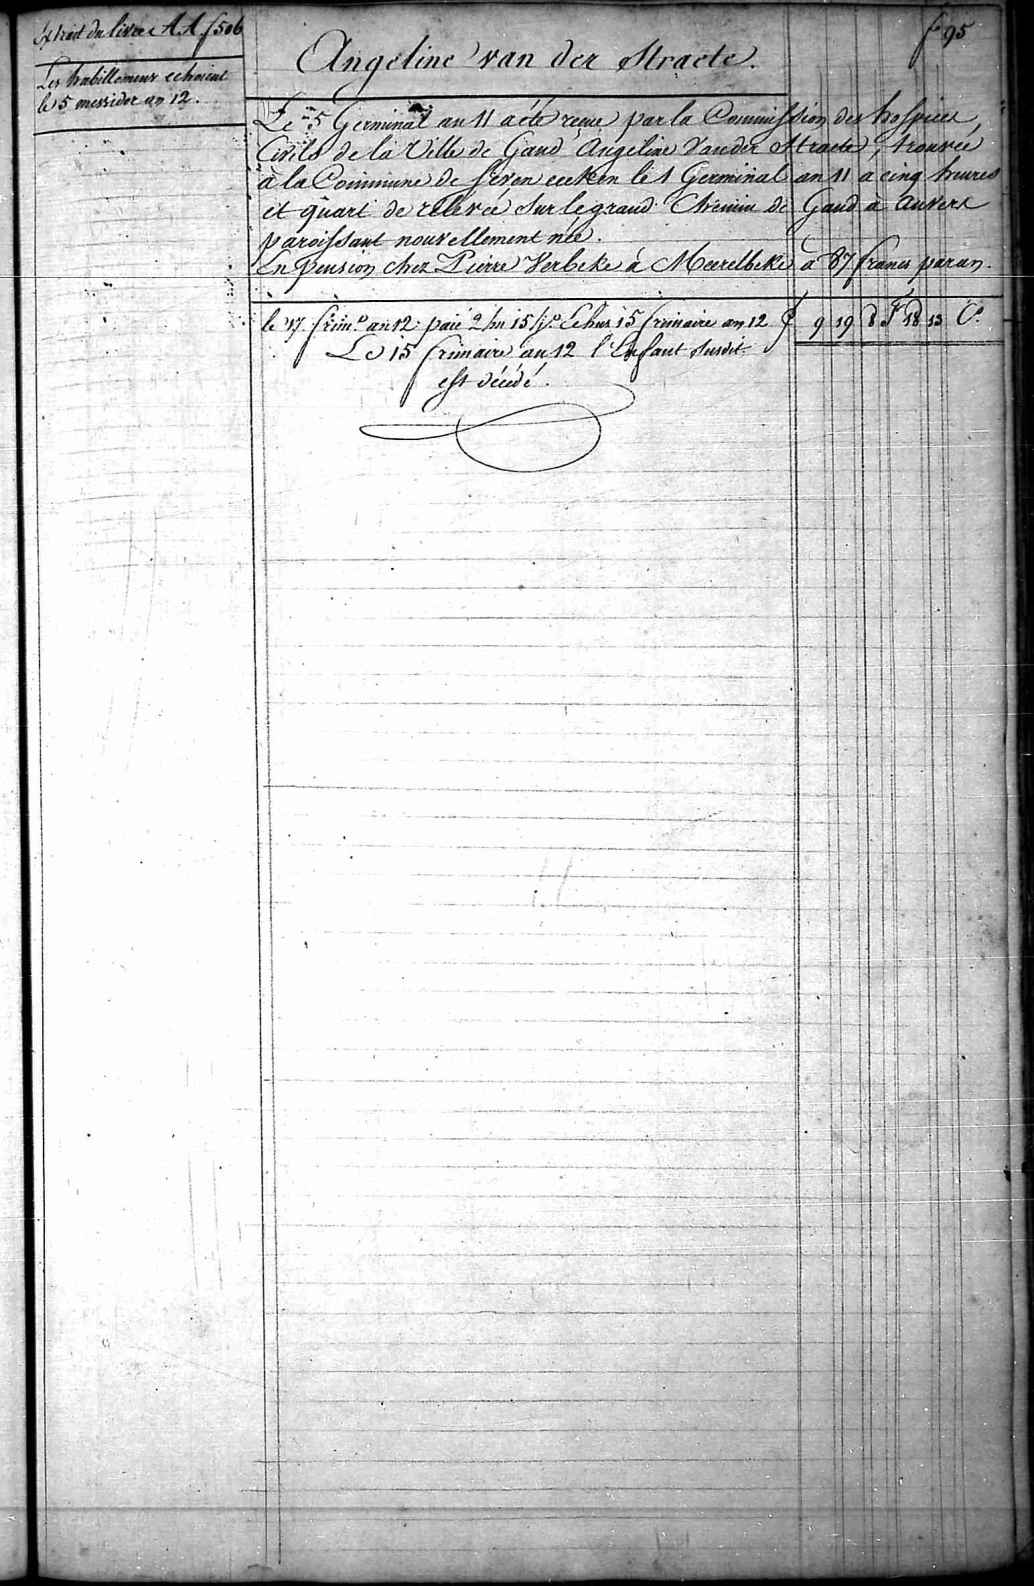 Extrait du livre A.A. f 506
f 95
Les habillemens echoient
le 5 messidor an 12.
Angeline van der Straete.
Le 5 Germinal an 11 a été reçue par la Commission des hospices
Civils de la Ville de Gand Angeline Vander Straete, trouvée
à la Commune de Seven eecken le 1 Germinal an 11 a cinq heures
et quart de relevée sur le grand Chemin de Gand a Anvers
paroissant nouvellement née.
En pension chez Pierre Verbeke à Meerelbeke à 87 francs par an.
le 17 frim.e an 12 paié 2 tri 15 j.s Echus 15 frimaire an 12 f 9 19 8 F 18 13 C.s
Le 15 frimaire an 12 l'Enfant susdit
est décédé.